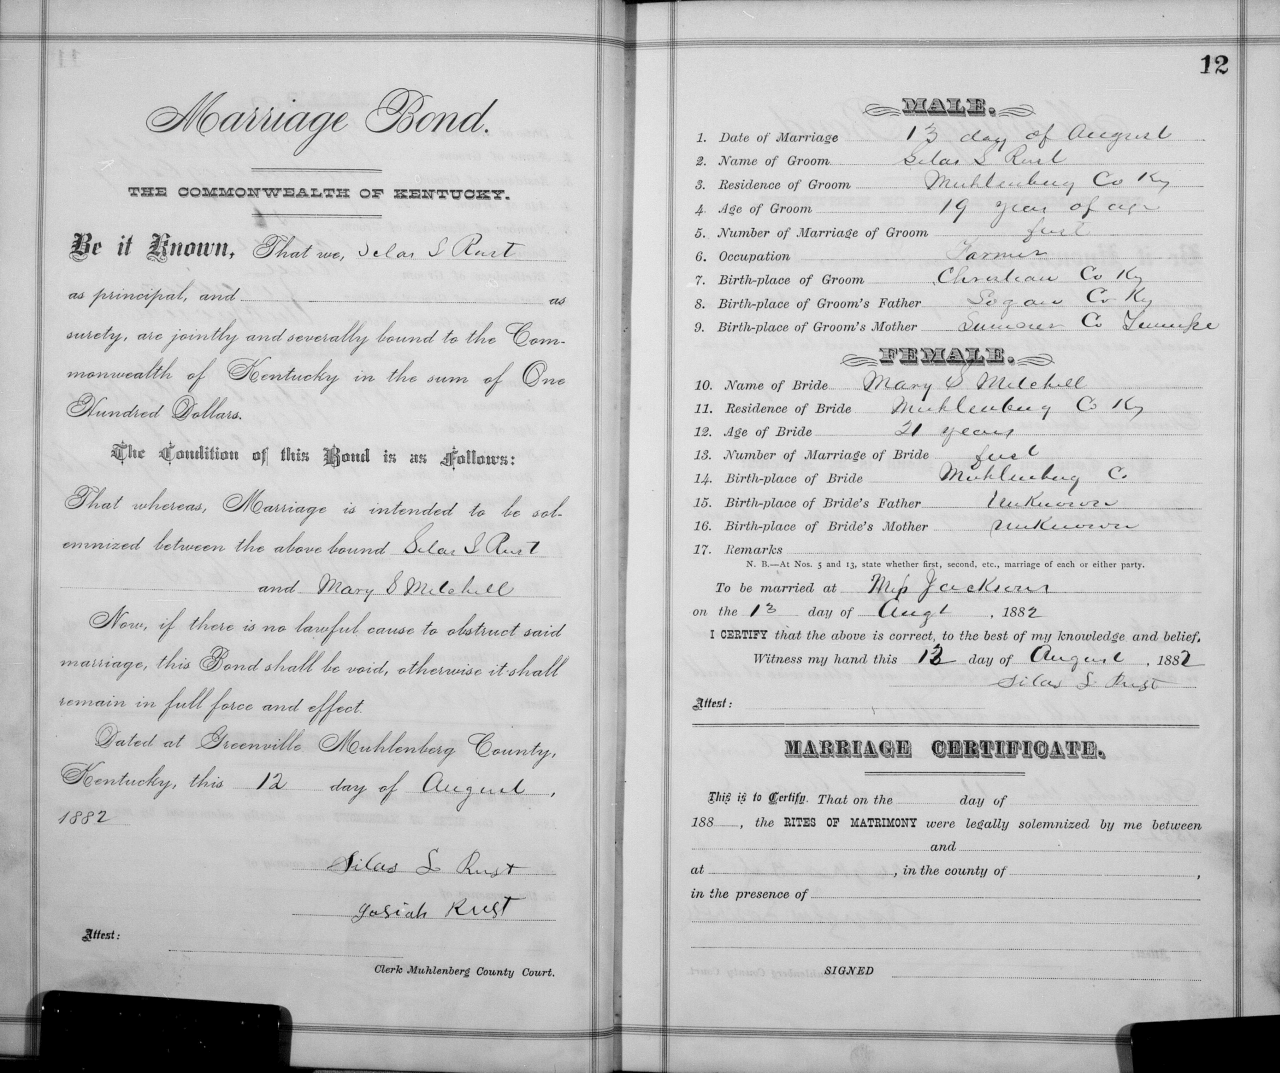 Marriage Bond.
THE COMMONWEALTH OF KENTUCKY.
Be it Known, That we, Silas S Rust
as principal, and as
surety, are jointly and severally bound to the Com-
monwealth of Kentucky in the sum of One
Hundred Dollars.
The Condition of this Bond is as Follows:
That whereas, Marriage is intended to be sol-
emnized between the above bound Silas S Rust
and Mary S Mitchell
Now, if there is no lawful cause to obstruct said
marriage, this Bond shall be void, otherwise it shall
remain in full force and effect.
Dated at Greenville Muhlenberg County,
Kentucky, this 12 day of August,
1882
Silas S Rust
Josiah Rust
Attest:
Clerk Muhlenberg County Court.
12
MALE.
1. Date of Marriage 13 day of August
2. Name of Groom Silas S Rust
3. Residence of Groom Muhlenburg Co Ky
4. Age of Groom 19 years of age
5. Number of Marriage of Groom first
6. Occupation Farmer
7. Birth-place of Groom Christian Co Ky
8. Birth-place of Groom's Father Logan Co Ky
9. Birth-place of Groom's Mother Sumner Co
FEMALE.
10. Name of Bride Mary S Mitchell
11. Residence of Bride Muhlenburg Co Ky
12. Age of Bride 21 years
13. Number of Marriage of Bride first
14. Birth-place of Bride Muhlenburg Co
15. Birth-place of Bride's Father Unknown
16. Birth-place of Bride's Mother Unknown
17. Remarks
N. B.—At Nos. 5 and 13, state whether first, second, etc., marriage of each or either party.
To be married at Jacksons
on the 13 day of Augt, 1882
I CERTIFY that the above is correct, to the best of my knowledge and belief,
Witness my hand this day of August, 1882
Silas S Rust
Attest:
MARRIAGE CERTIFICATE.
This is to Certify, That on the day of
188 , the RITES OF MATRIMONY were legally solemnized by me between
and
at , in the county of ,
in the presence of
SIGNED